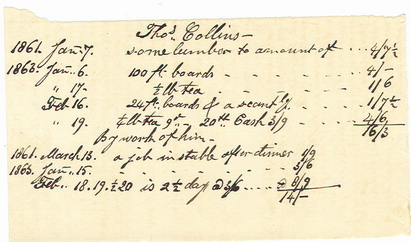 Thos. Collins -
1861. Jan. 7. some lumber to amount of ... 4/7½
1865. Jan. 6. 100 ft. boards - - 4/-
" 17. ½ lb tea - 1/6
Feb 16. 24 ft. boards & a scantl'g. - 1/7½
" 19. ½ lb tea 9d - 20th Cash 3/9 4/6
16/3
By worth of him -
1861. March 13. a job in stable after dinner 1/9
1865. Jan. 15. 3/6
Feb. 18. 19. & 20 is 2½ day @ 3/6 8/9
14/-